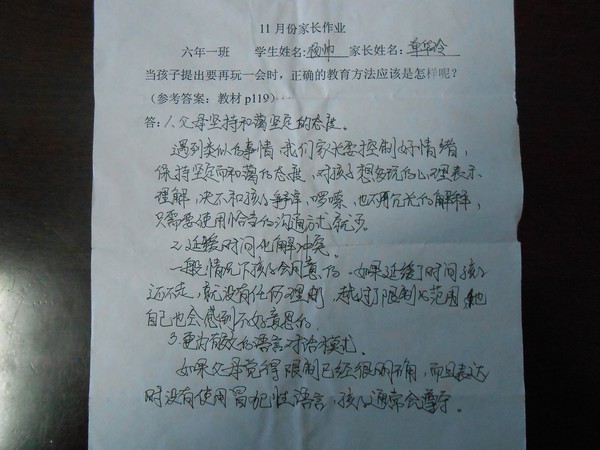 11月份家长作业
六年一班 学生姓名: 杨帅 家长姓名: 单华玲
当孩子提出要再玩一会时，正确的教育方法应该是怎样呢？
（参考答案：教材p119）
答：1、父母坚持和蔼坚定的态度。
遇到类似的事情，我们家长要控制好情绪，
保持坚定而和蔼的态度，对孩子想多玩的心理表示
理解，决不和孩子争辩，啰嗦，也不再冗长的解释，
只需要使用恰当的沟通方式就可。
2、延缓时间化解冲突。
一般情况下孩子会同意的，如果延缓了时间孩子
还不走，就没有任何理由，越过了限制的范围，他
自己也会感到不好意思的。
3、更为有效的语言对话模式。
如果父母觉得限制已经很明确，而且表达
时没有使用冒犯性语言，孩子通常会遵守。